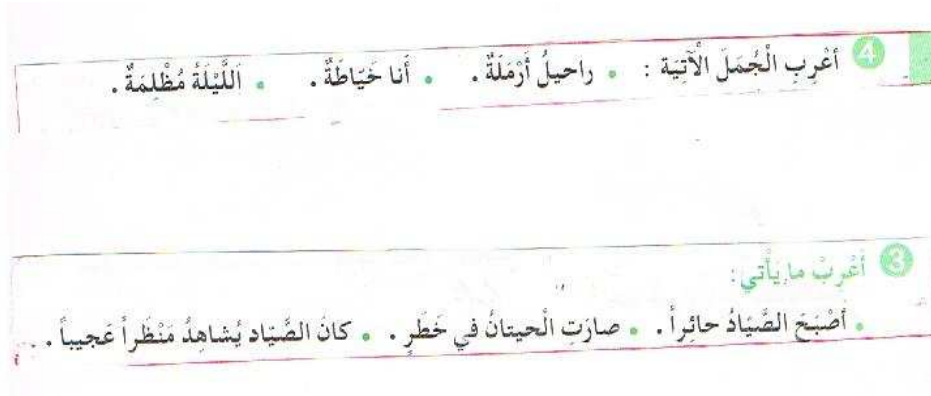 4 أَعْرِبِ الْجُمَلَ الْآتِيَة : • راحيلُ أَرْمَلَةٌ . • أَنا خَيّاطَةٌ . • اَللَّيْلَةُ مُظْلِمَةٌ .
3 أَعْرِبْ ما يَأْتي :
• أَصْبَحَ الصَّيّادُ حائِراً . • صارَتِ الْحيتانُ في خَطَرٍ . • كانَ الصَّيّاد يُشاهِدُ مَنْظَراً عَجيباً .